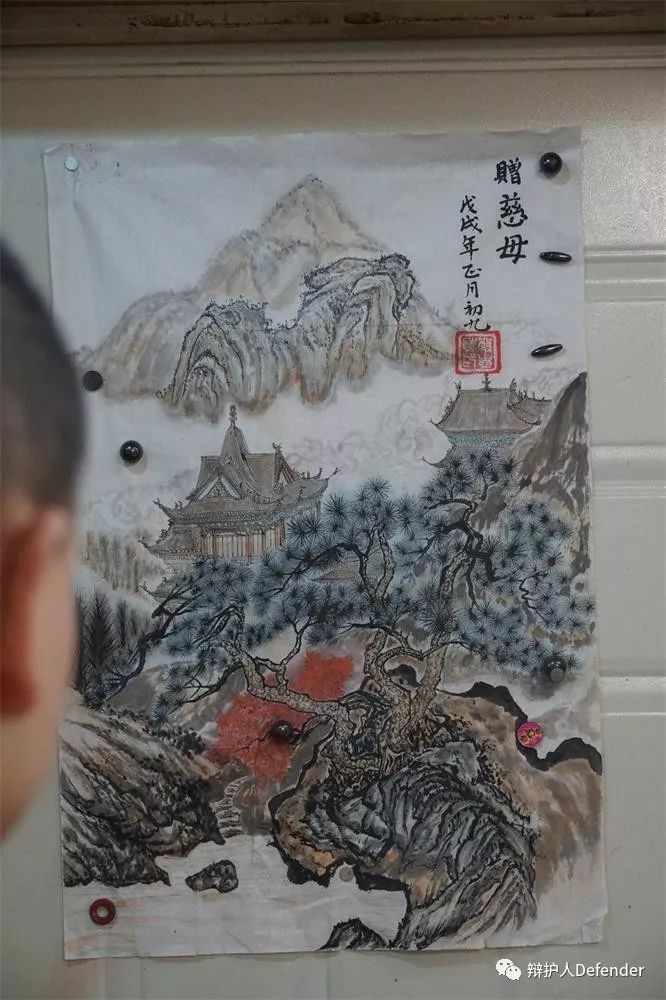 贈慈母
戊戌年正月初九
辩护人Defender